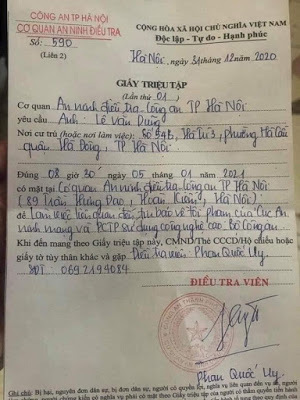 CÔNG AN TP HÀ NỘI
CƠ QUAN AN NINH ĐIỀU TRA
Số: 590
(Liên 2)
CỘNG HÒA XÃ HỘI CHỦ NGHĨA VIỆT NAM
Độc lập - Tự do - Hạnh phúc
Hà Nội, ngày 31 tháng 12 năm 2020
GIẤY TRIỆU TẬP
(Lần thứ 01)
Cơ quan An ninh điều tra - Công an TP Hà Nội
yêu cầu Anh: Lê Văn Dũng
Nơi cư trú (hoặc nơi làm việc): Số 54B, Hà Trì 3, phường Hà Cầu
quận Hà Đông, TP Hà Nội.
Đúng 08 giờ 30 ngày 05 tháng 01 năm 2021
có mặt tại Cơ quan An ninh điều tra - Công an TP Hà Nội
(89 Trần Hưng Đạo, Hoàn Kiếm, Hà Nội)
để Làm việc liên quan đến tin báo về tội phạm của Cục An
ninh mạng và PCTP sử dụng công nghệ cao - Bộ Công an.
Khi đến mang theo Giấy triệu tập này, CMND/Thẻ CCCD/Hộ chiếu hoặc
giấy tờ tùy thân khác và gặp Điều tra viên: Phan Quốc Uy.
SĐT: 069.2194084
ĐIỀU TRA VIÊN
Phan Quốc Uy
Ghi chú: Bị hại, nguyên đơn dân sự, bị đơn dân sự, người có quyền lợi, nghĩa vụ liên quan đến vụ án,